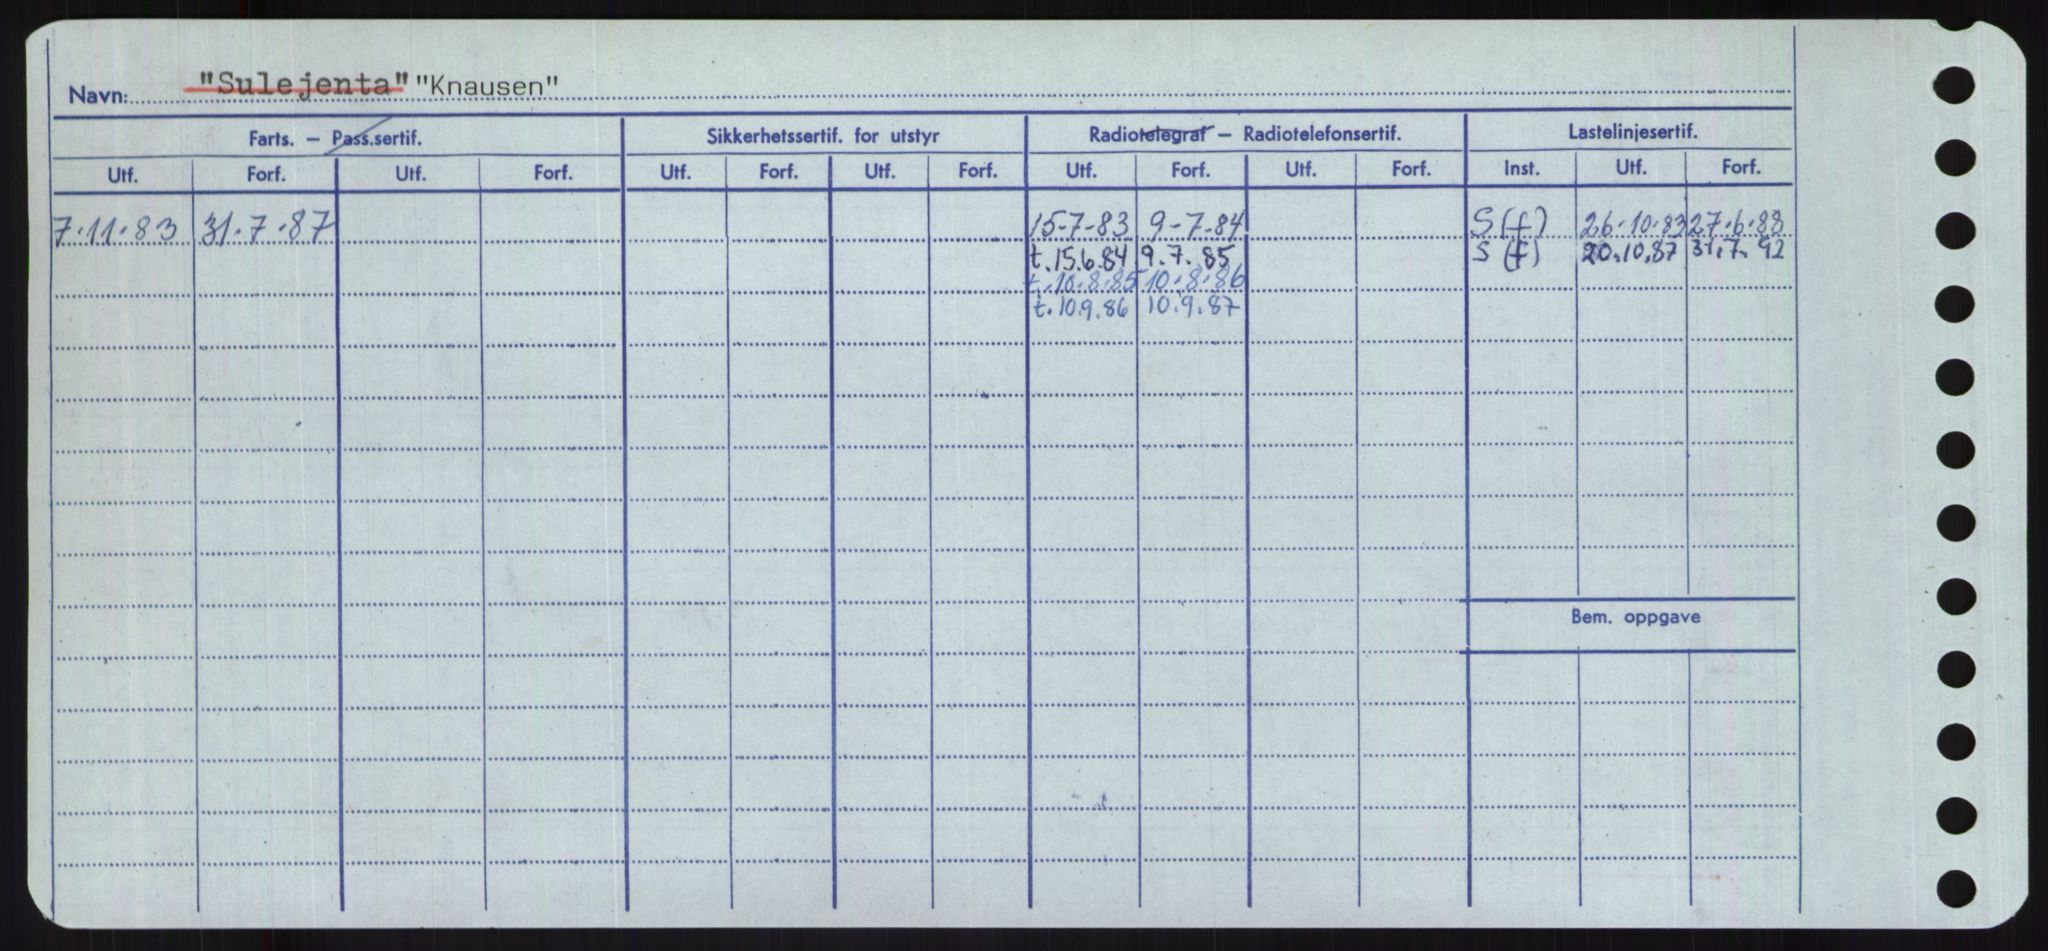 Navn: "Sulejenta" "Knausen"
Farts. – Pass.sertif. Sikkerhetssertif. for utstyr Radiotelegraf – Radiotelefonsertif. Lastelinjesertif.
Utf. Forf. Utf. Forf. Utf. Forf. Utf. Forf. Utf. Forf. Utf. Forf. Inst. Utf. Forf.
7.11.83 31.7.87 15-7-83 9-7-84 S(f) 26.10.83 27.6.88
t.15.6.84 9.7.85 S (f) 20.10.87 31.7.92
t.10.8.85 10.8.86
t.10.9.86 10.9.87
Bem. oppgave